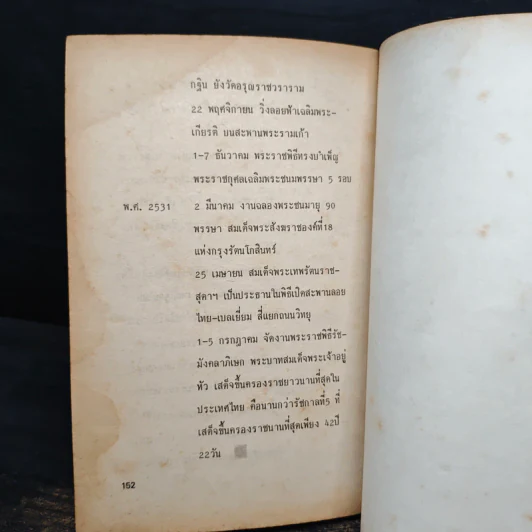 กฐิน ยังวัดอรุณราชวราราม
22 พฤศจิกายน วิ่งลอยฟ้าเฉลิมพระ-
เกียรติ บนสะพานพระรามเก้า
1-7 ธันวาคม พระราชพิธีทรงบำเพ็ญ
พระราชกุศลเฉลิมพระชนมพรรษา 5 รอบ
พ.ศ. 2531 2 มีนาคม งานฉลองพระชนมายุ 90
พรรษา สมเด็จพระสังฆราชองค์ที่18
แห่งกรุงรัตนโกสินทร์
25 เมษายน สมเด็จพระเทพรัตนราช-
สุดาฯ เป็นประธานในพิธีเปิดสะพานลอย
ไทย-เบลเยี่ยม สี่แยกถนนวิทยุ
1-5 กรกฎาคม จัดงานพระราชพิธีรัช-
มังคลาภิเษก พระบาทสมเด็จพระเจ้าอยู่
หัว เสด็จขึ้นครองราชยาวนานที่สุดใน
ประเทศไทย คือนานกว่ารัชกาลที่5 ที่
เสด็จขึ้นครองราชนานที่สุดเพียง 42ปี
22วัน
152